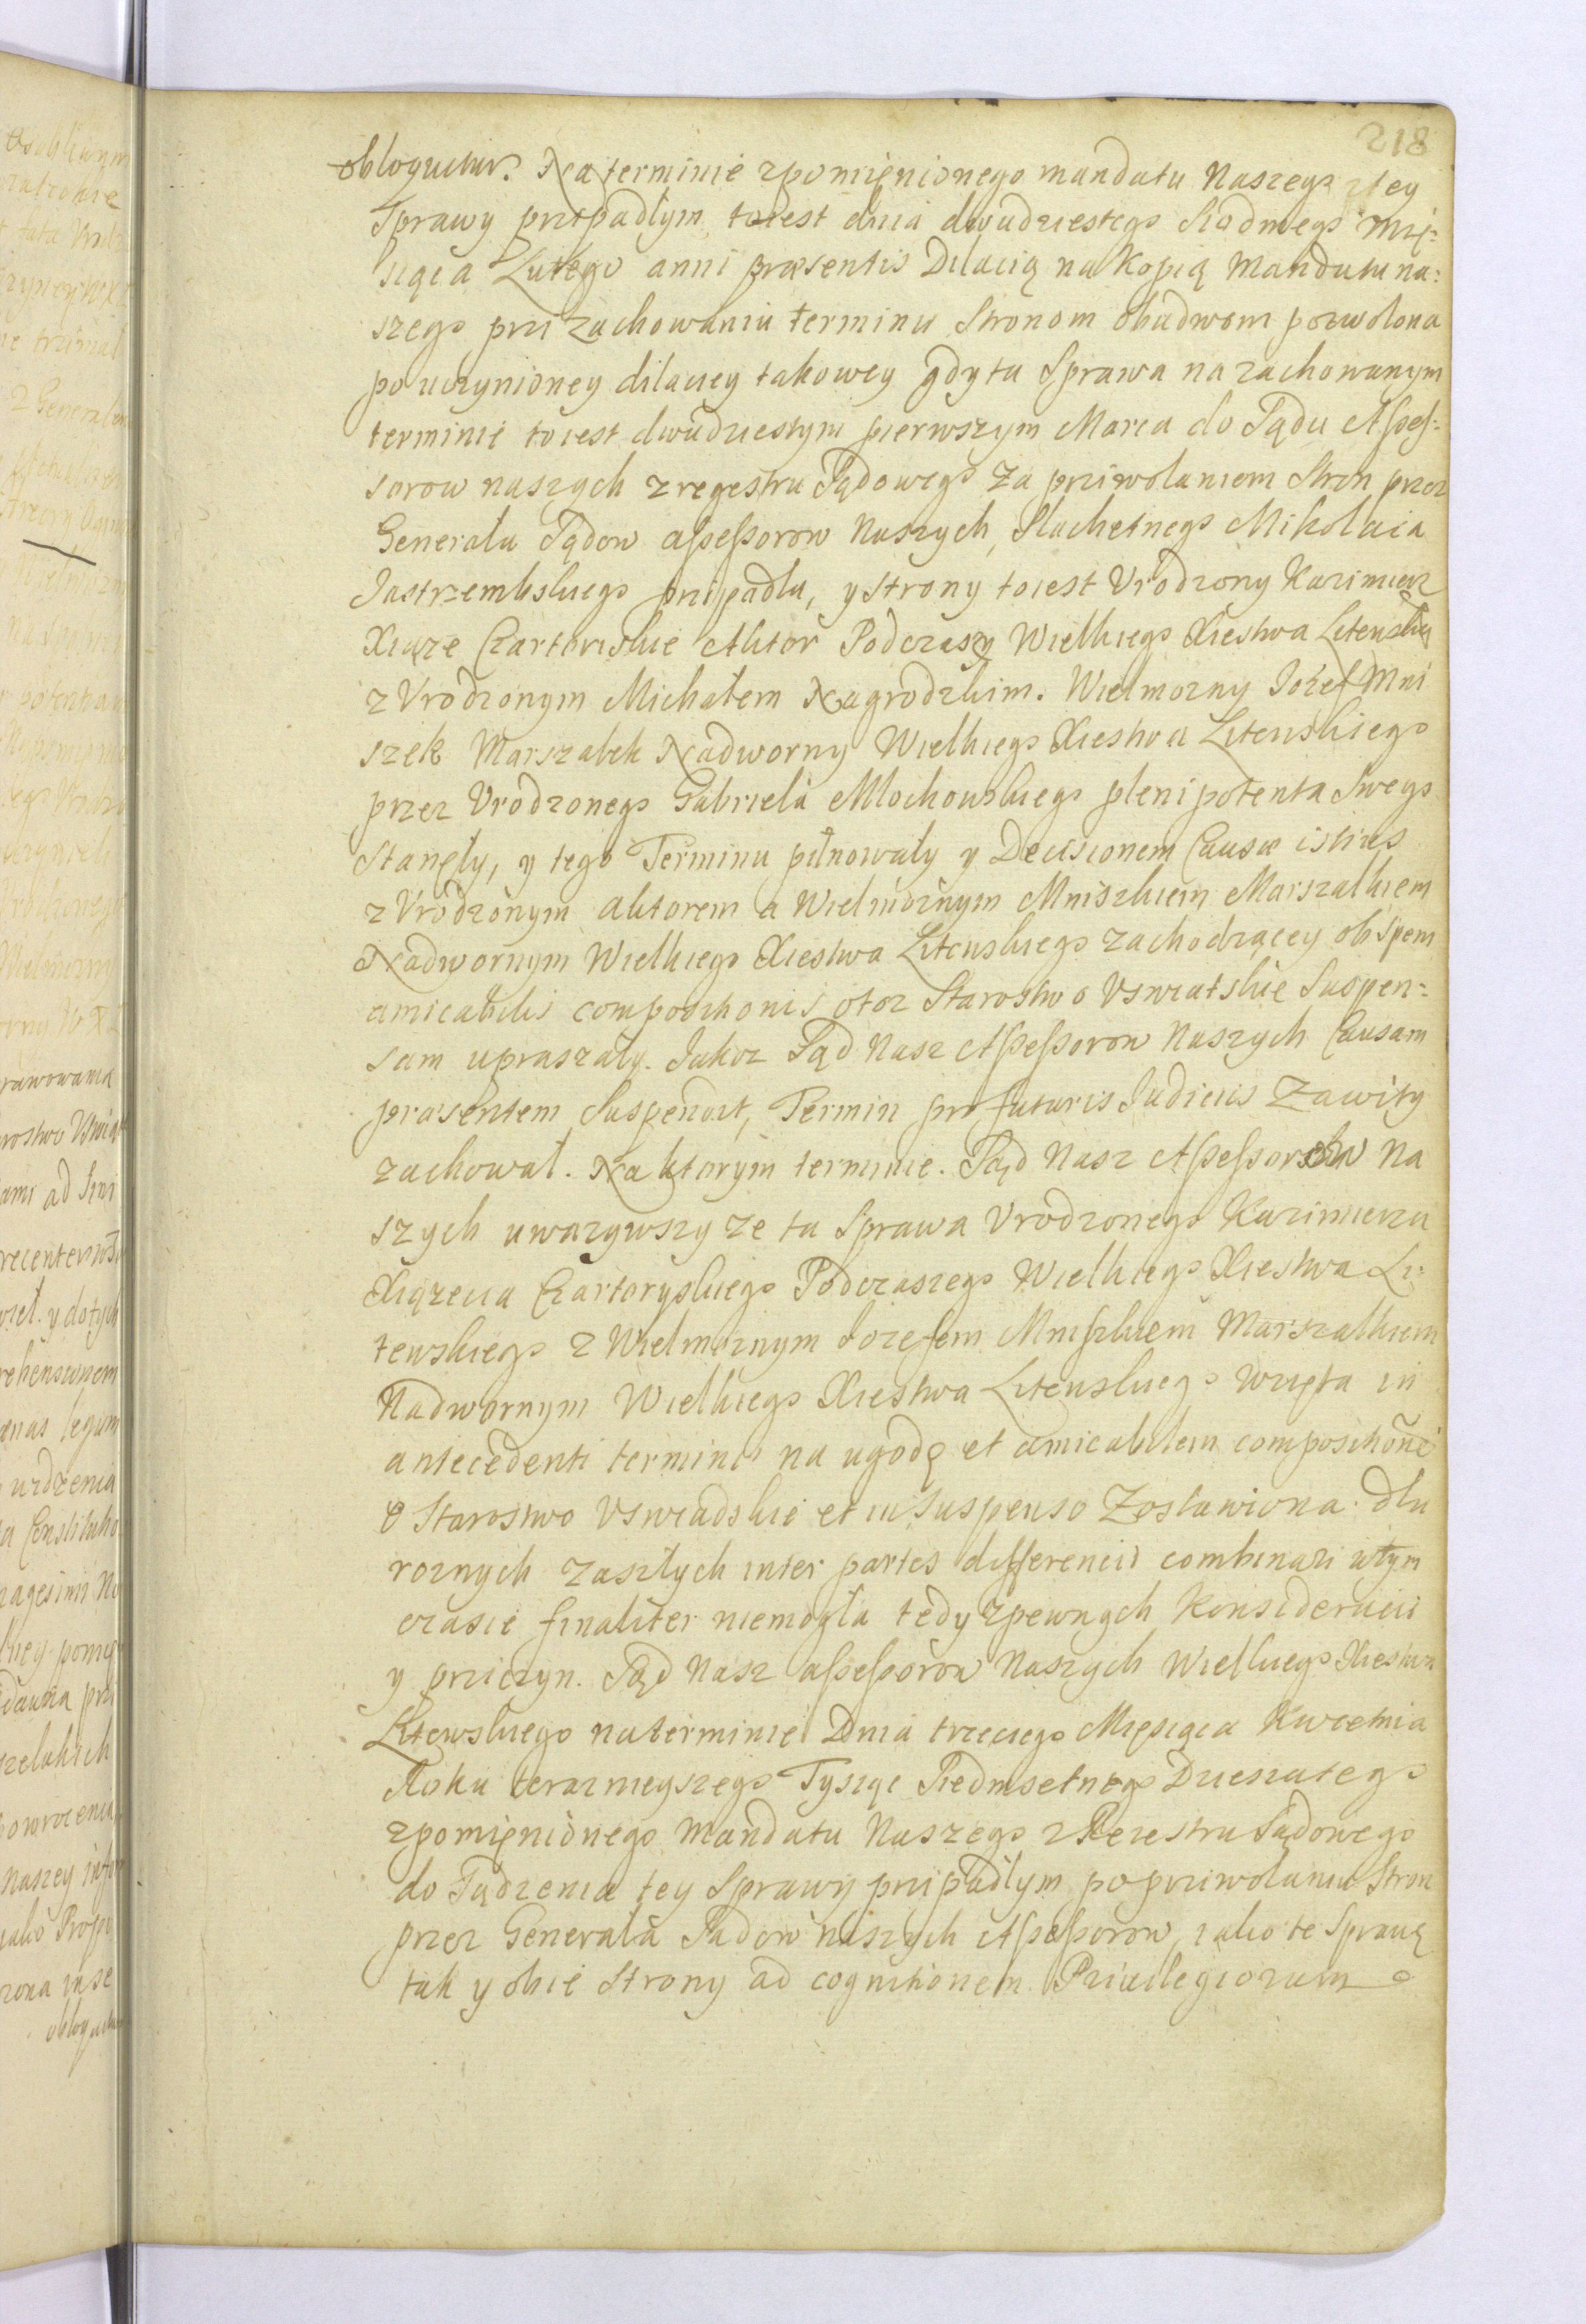 218
obloquetur. Na terminie zpomięnionego mandatu Naszego z tey
Sprawy przypadłym, toiest dnia dwudziestego Siodmego Mię:
siąca Lutego anni præsentis Dilacią na Kopią Mandatu na:
szego przi zachowaniu terminu Stronom obudwom pozwolona
po uczynioney dilaciey takowey gdy ta Sprawa na zachowanym
terminie toiest dwudziestym pierwszym Marca do Sądu Assess:
sorow naszych z regestru Sądowego za prziwołaniem Stron przez
Generała Sądow assessorow Naszych, Slachetnego Mikołaia
Jastrzembskiego przipadła, y strony toiest Vrodzony Kazimierz
Xiąze Czartoriskie Aktor Podczaszy Wielkiego Xiestwa Litewskie
z Vrodzonym Michałem Nagrodzkim. Wielmozny Jozef Mni
szek Marszałek Nadworny Wielkiego Xiestwa Litewskiego
przez Vrodzonego Gabriela Młochowskiego plenipotenta Swego
Stanęły, y tego Terminu pilnowały y Decisionem Causæ istius
z Vrodzonym aktorem a Wielmoznym Mniszkiem Marszałkiem
Nadwornym Wielkiego Xiestwa Litewskiego zachodzącey ob Spem
amicabilis compositionis otoz Starostwo Vswiatskie Suspen:
sam upraszały. Jakoz Sąd Nasz Assessorow Naszych Causam
præsentem Suspendit, Termin pro futuris Judiciis Zawity
zachował. Na ktorym terminie. Sąd Nasz Assessorow Na
szych uwazywszy ze ta Sprawa Vrodzonego Kazimierza
Xiązecia Czartoryskiego Podczaszego Wielkiego Xiestwa Li:
tewskiego z Wielmoznym Jozefem Mniszkiem Marszałkiem
Nadwornym Wielkiego Xiestwa Litewskiego wzięta in
antecedenti termino na ugodę et amicabilem compositionē
o Starostwo Vswiadskie et in suspenso Zostawiona dla
roznych zaszłych inter partes differencii combinari w tym
czasie finaliter niemogła tedy z pewnych Konsideracii
y przicżyn. Sąd Nasz assessorow Naszych Wielkiego Xiestwa
Litewskiego na terminie Dnia trzeciego Mięsiąca Kwietnia
Roku teraznieyszego Tysiąc Siedmsetnego Dziesiatego
zpomięnionego Mandatu Naszego z Reiestru Sądowego
do Sądzenia tey Sprawy przipadłym po przivołaniu Stron
przez Generała Sadow naszych Assessorow, iako te Sprawę
tak y obie Strony ad cognitionem Priuilegiorum